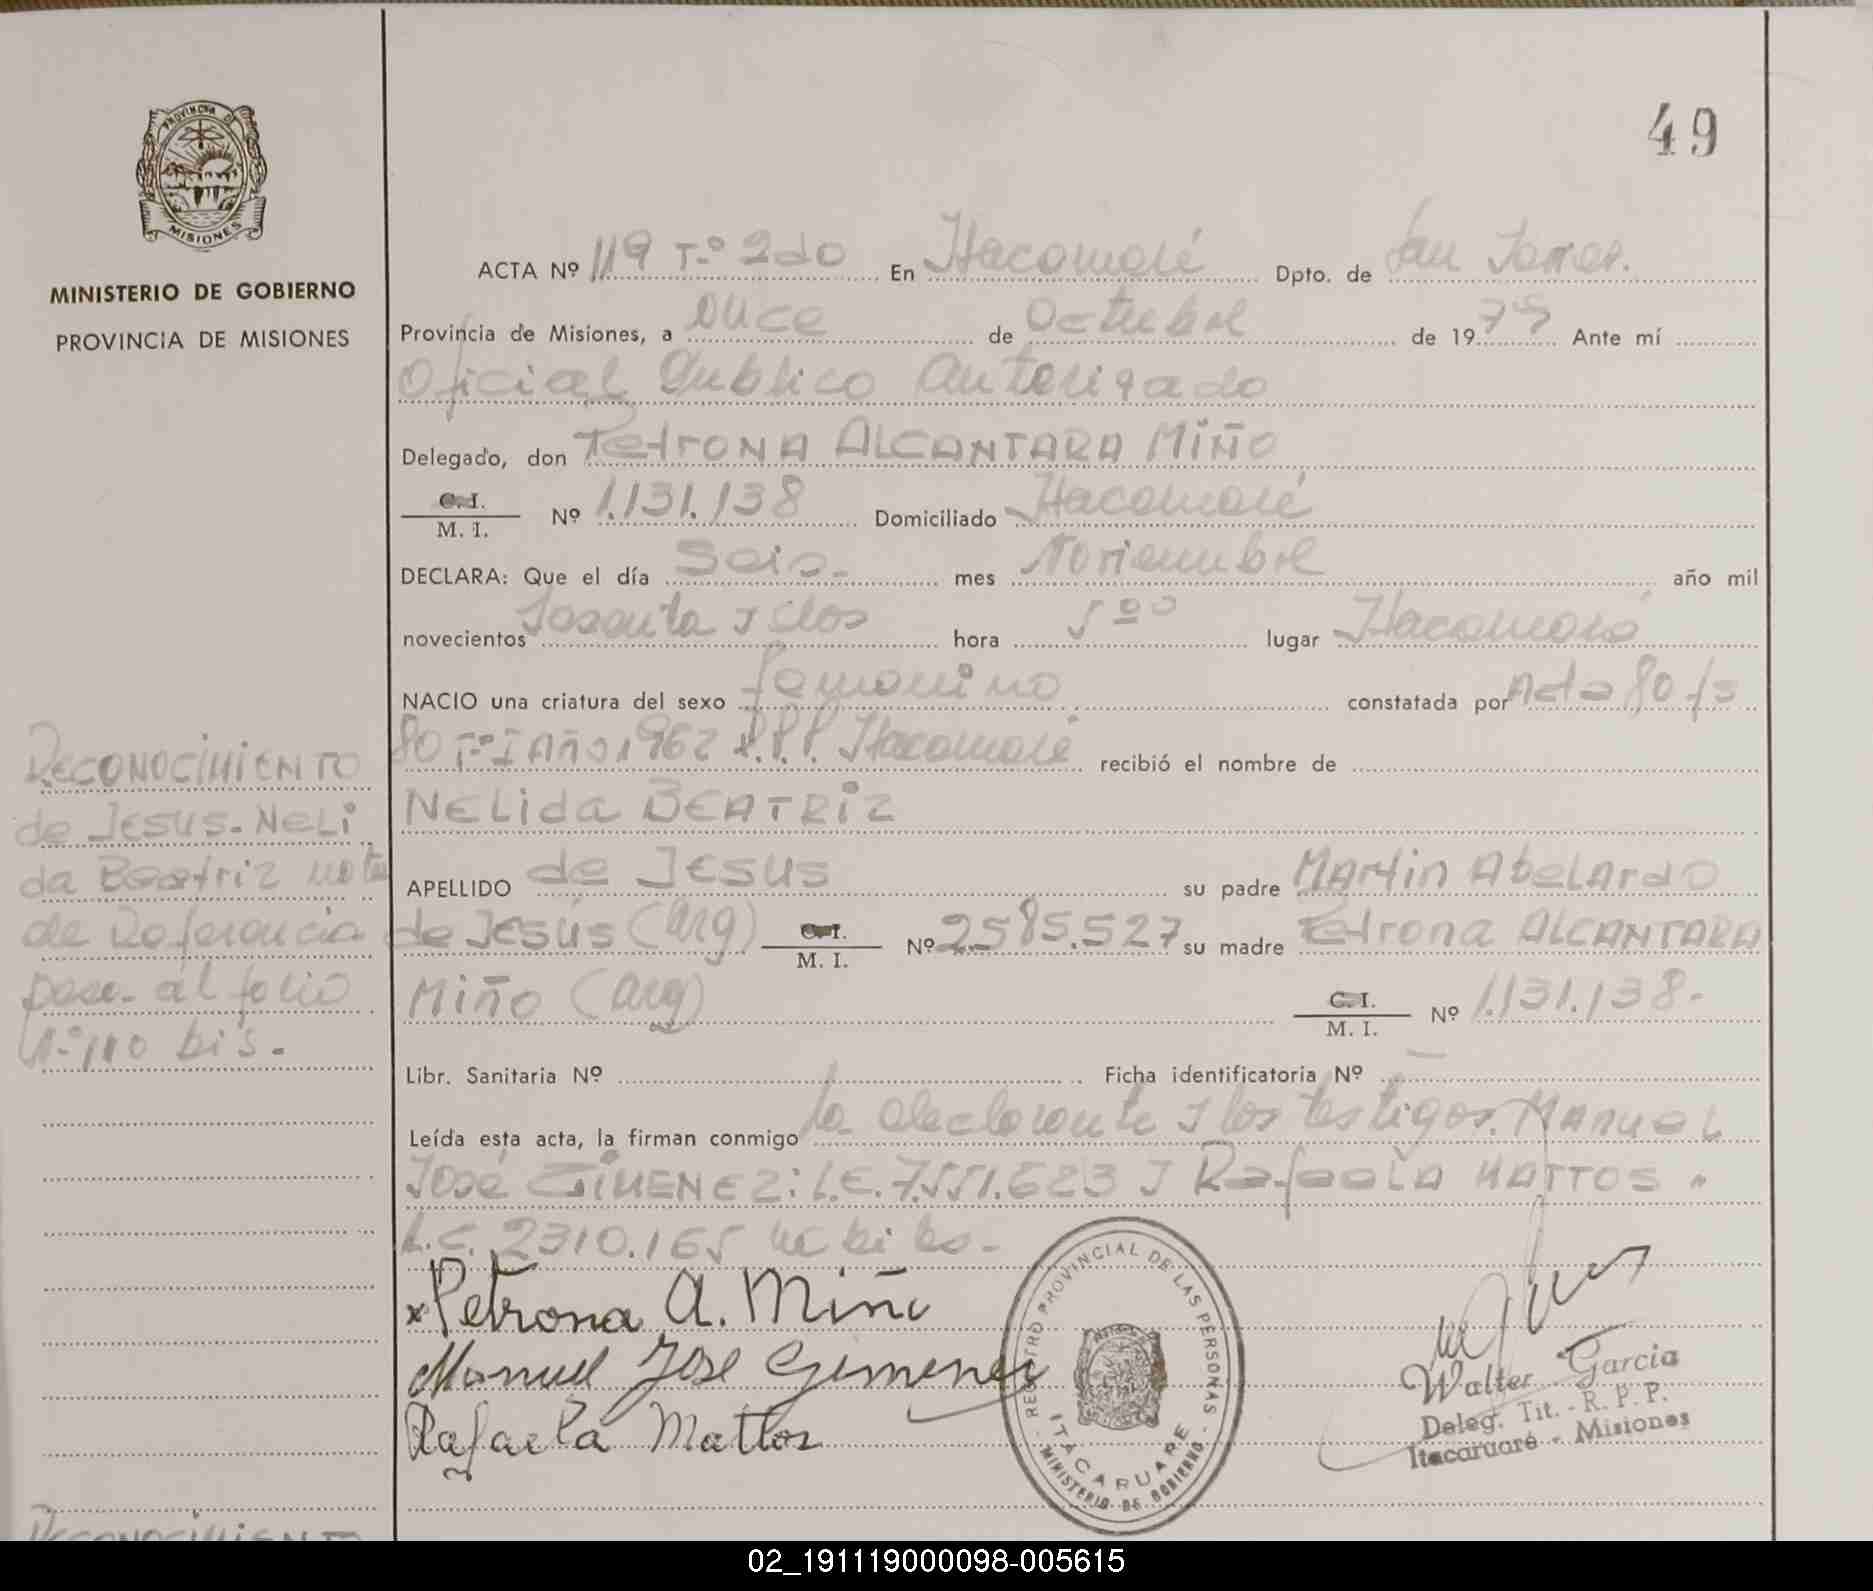 49
PROVINCIA DE
MISIONES
MINISTERIO DE GOBIERNO
PROVINCIA DE MISIONES
ACTA Nº 119 Tº 2do En Itacaruaré Dpto. de San Javier.
Provincia de Misiones, a once de Octubre de 1975 Ante mí
Oficial Publico Autorizado
Delegado, don Petrona ALCANTARA MIÑO
C.I. / M. I. Nº 1.131.138 Domiciliado Itacaruaré
DECLARA: Que el día Seis.- mes Noviembre año mil
novecientos Sesenta y dos hora 5ºº lugar Itacaruaré
NACIO una criatura del sexo femenino constatada por Acta 80 fs
80 Tº I Año 1962 R.P.P. Itacaruaré recibió el nombre de
NELida BEATRIZ
APELLIDO de JESUS su padre Martin AbeLArdO
de JESÚS (Arg) C.I. / M. I. Nº 2585.527 su madre Petrona ALCANTARA
Miño (Arg) C.I. / M. I. Nº 1.131.138.-
Libr. Sanitaria Nº Ficha identificatoria Nº —
Leída esta acta, la firman conmigo la declarante y los testigos. Manuel
José GiMENEZ: L.E. 7.551.623 y Rafaela MATTOS.
L.C. 2310.165
RECONOCIMIENTO
de JESUS-NELi
da Beatriz nota
de Referencia
pase al folio
Nº 110 bis.-
x Petrona A. Miño
Manuel José Gimenez
Rafaela Mattos
REGISTRO PROVINCIAL DE LAS PERSONAS
ITACARUARE
- MINISTERIO DE GOBIERNO -
Walter Garcia
Deleg. Tit. - R. P. P.
Itacaruaré - Misiones
RECONOCIMIENTO
02_191119000098-005615